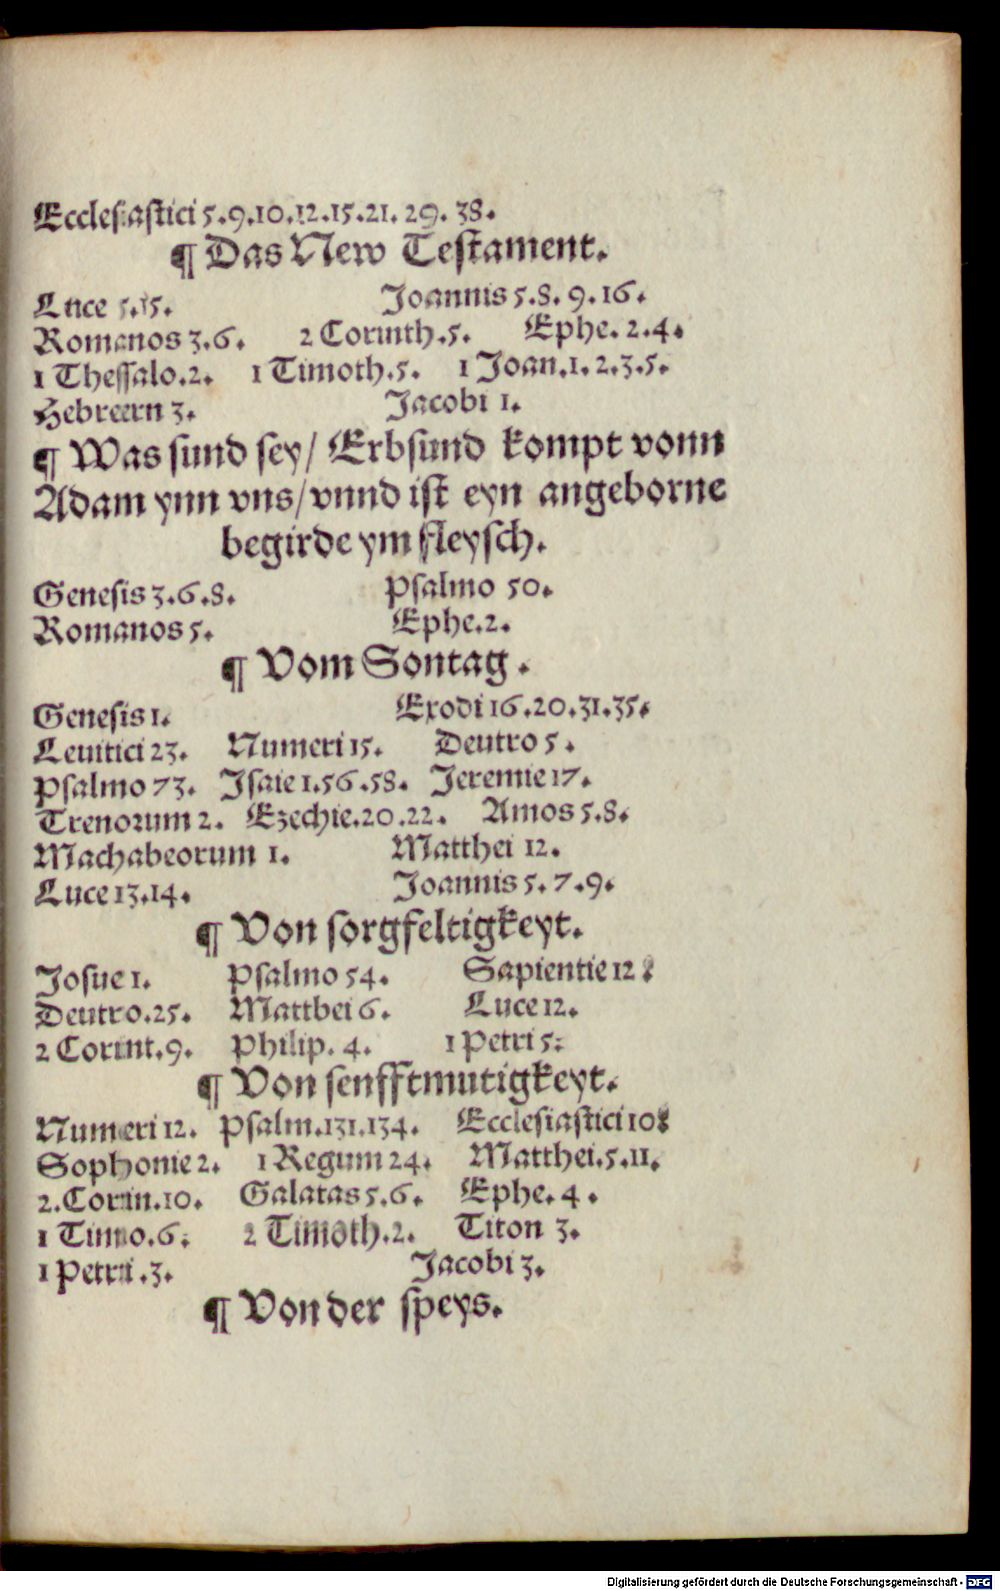 Ecclesiastici 5.9.10.12.15.21. 29. 38.
¶ Das New Testament.
Luce 5.15. Joannis 5.8. 9.16.
Romanos 3.6. 2 Corinth.5. Ephe. 2.4.
1 Thessalo.2. 1 Timoth.5. 1 Joan.1.2.3.5.
Hebreern 3. Jacobi 1.
¶ Was sund sey/ Erbsund kompt vonn
Adam ynn vns/vnnd ist eyn angeborne
begirde ym fleysch.
Genesis 3.6.8. Psalmo 50.
Romanos 5. Ephe.2.
¶ Vom Sontag.
Genesis 1. Exodi 16.20.31.35.
Leuitici 23. Numeri 15. Deutro 5.
Psalmo 73. Isaie 1.56.58. Jeremie 17.
Trenorum 2. Ezechie.20.22. Amos 5.8.
Machabeorum 1. Matthei 12.
Luce 13.14. Joannis 5.7.9.
¶ Von sorgfeltigkeyt.
Josue 1. Psalmo 54. Sapientie 12.
Deutro.25. Matthei 6. Luce 12.
2 Corint.9. Philip. 4. 1 Petri 5.
¶ Von senfftmutigkeyt.
Numeri 12. Psalm.131.134. Ecclesiastici 10.
Sophonie 2. 1 Regum 24. Matthei.5.11.
2.Corin.10. Galatas 5.6. Ephe. 4.
1 Timo.6. 2 Timoth.2. Titon 3.
1 Petri .3. Jacobi 3.
¶ Von der speys.
Digitalisierung gefördert durch die Deutsche Forschungsgemeinschaft - DFG